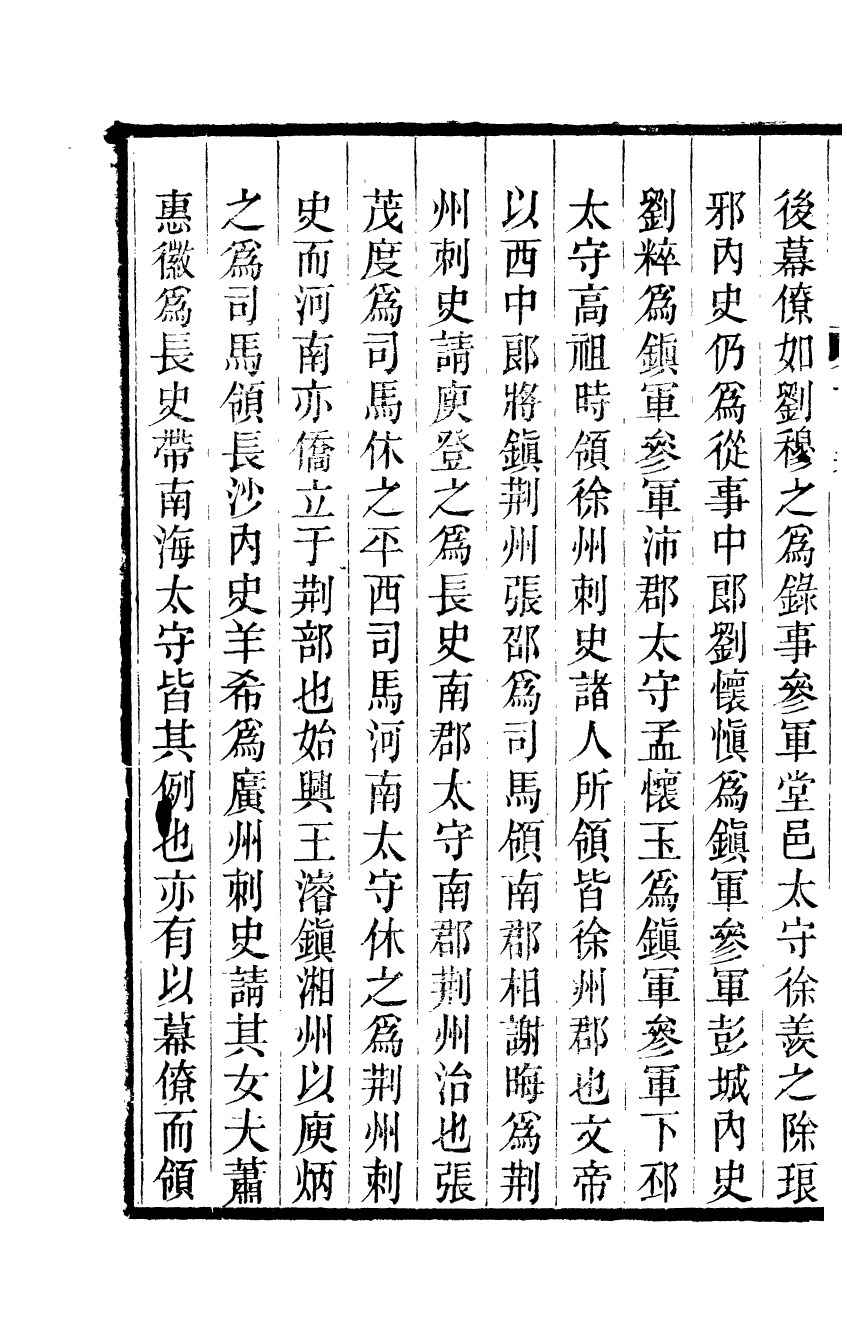 後幕僚如劉穆之爲錄事參軍堂邑太守徐羨之除琅
邪內史仍爲從事中郎劉懷愼爲鎭軍參軍彭城內史
劉粹爲鎭軍參軍沛郡太守孟懷玉爲鎭軍參軍下邳
太守高祖時領徐州刺史諸人所領皆徐州郡也文帝
以西中郎將鎭荆州張邵爲司馬領南郡相謝晦爲荆
州刺史請庾登之爲長史南郡太守南郡荆州治也張
茂度爲司馬休之平西司馬河南太守休之爲荆州刺
史而河南亦僑立于荆部也始興王濬鎭湘州以庾炳
之爲司馬領長沙內史羊希爲廣州刺史請其女夫蕭
惠徽爲長史帶南海太守皆其例也亦有以幕僚而領